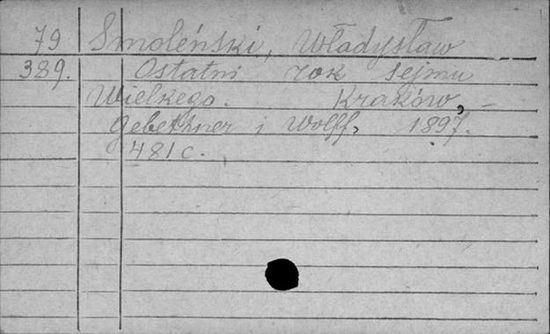 79 Smoleński, Władysław
389. Ostatni rok sejmu
Wielkego. Kraków, –
Gebethner i Wolff, 1897.
481 c.